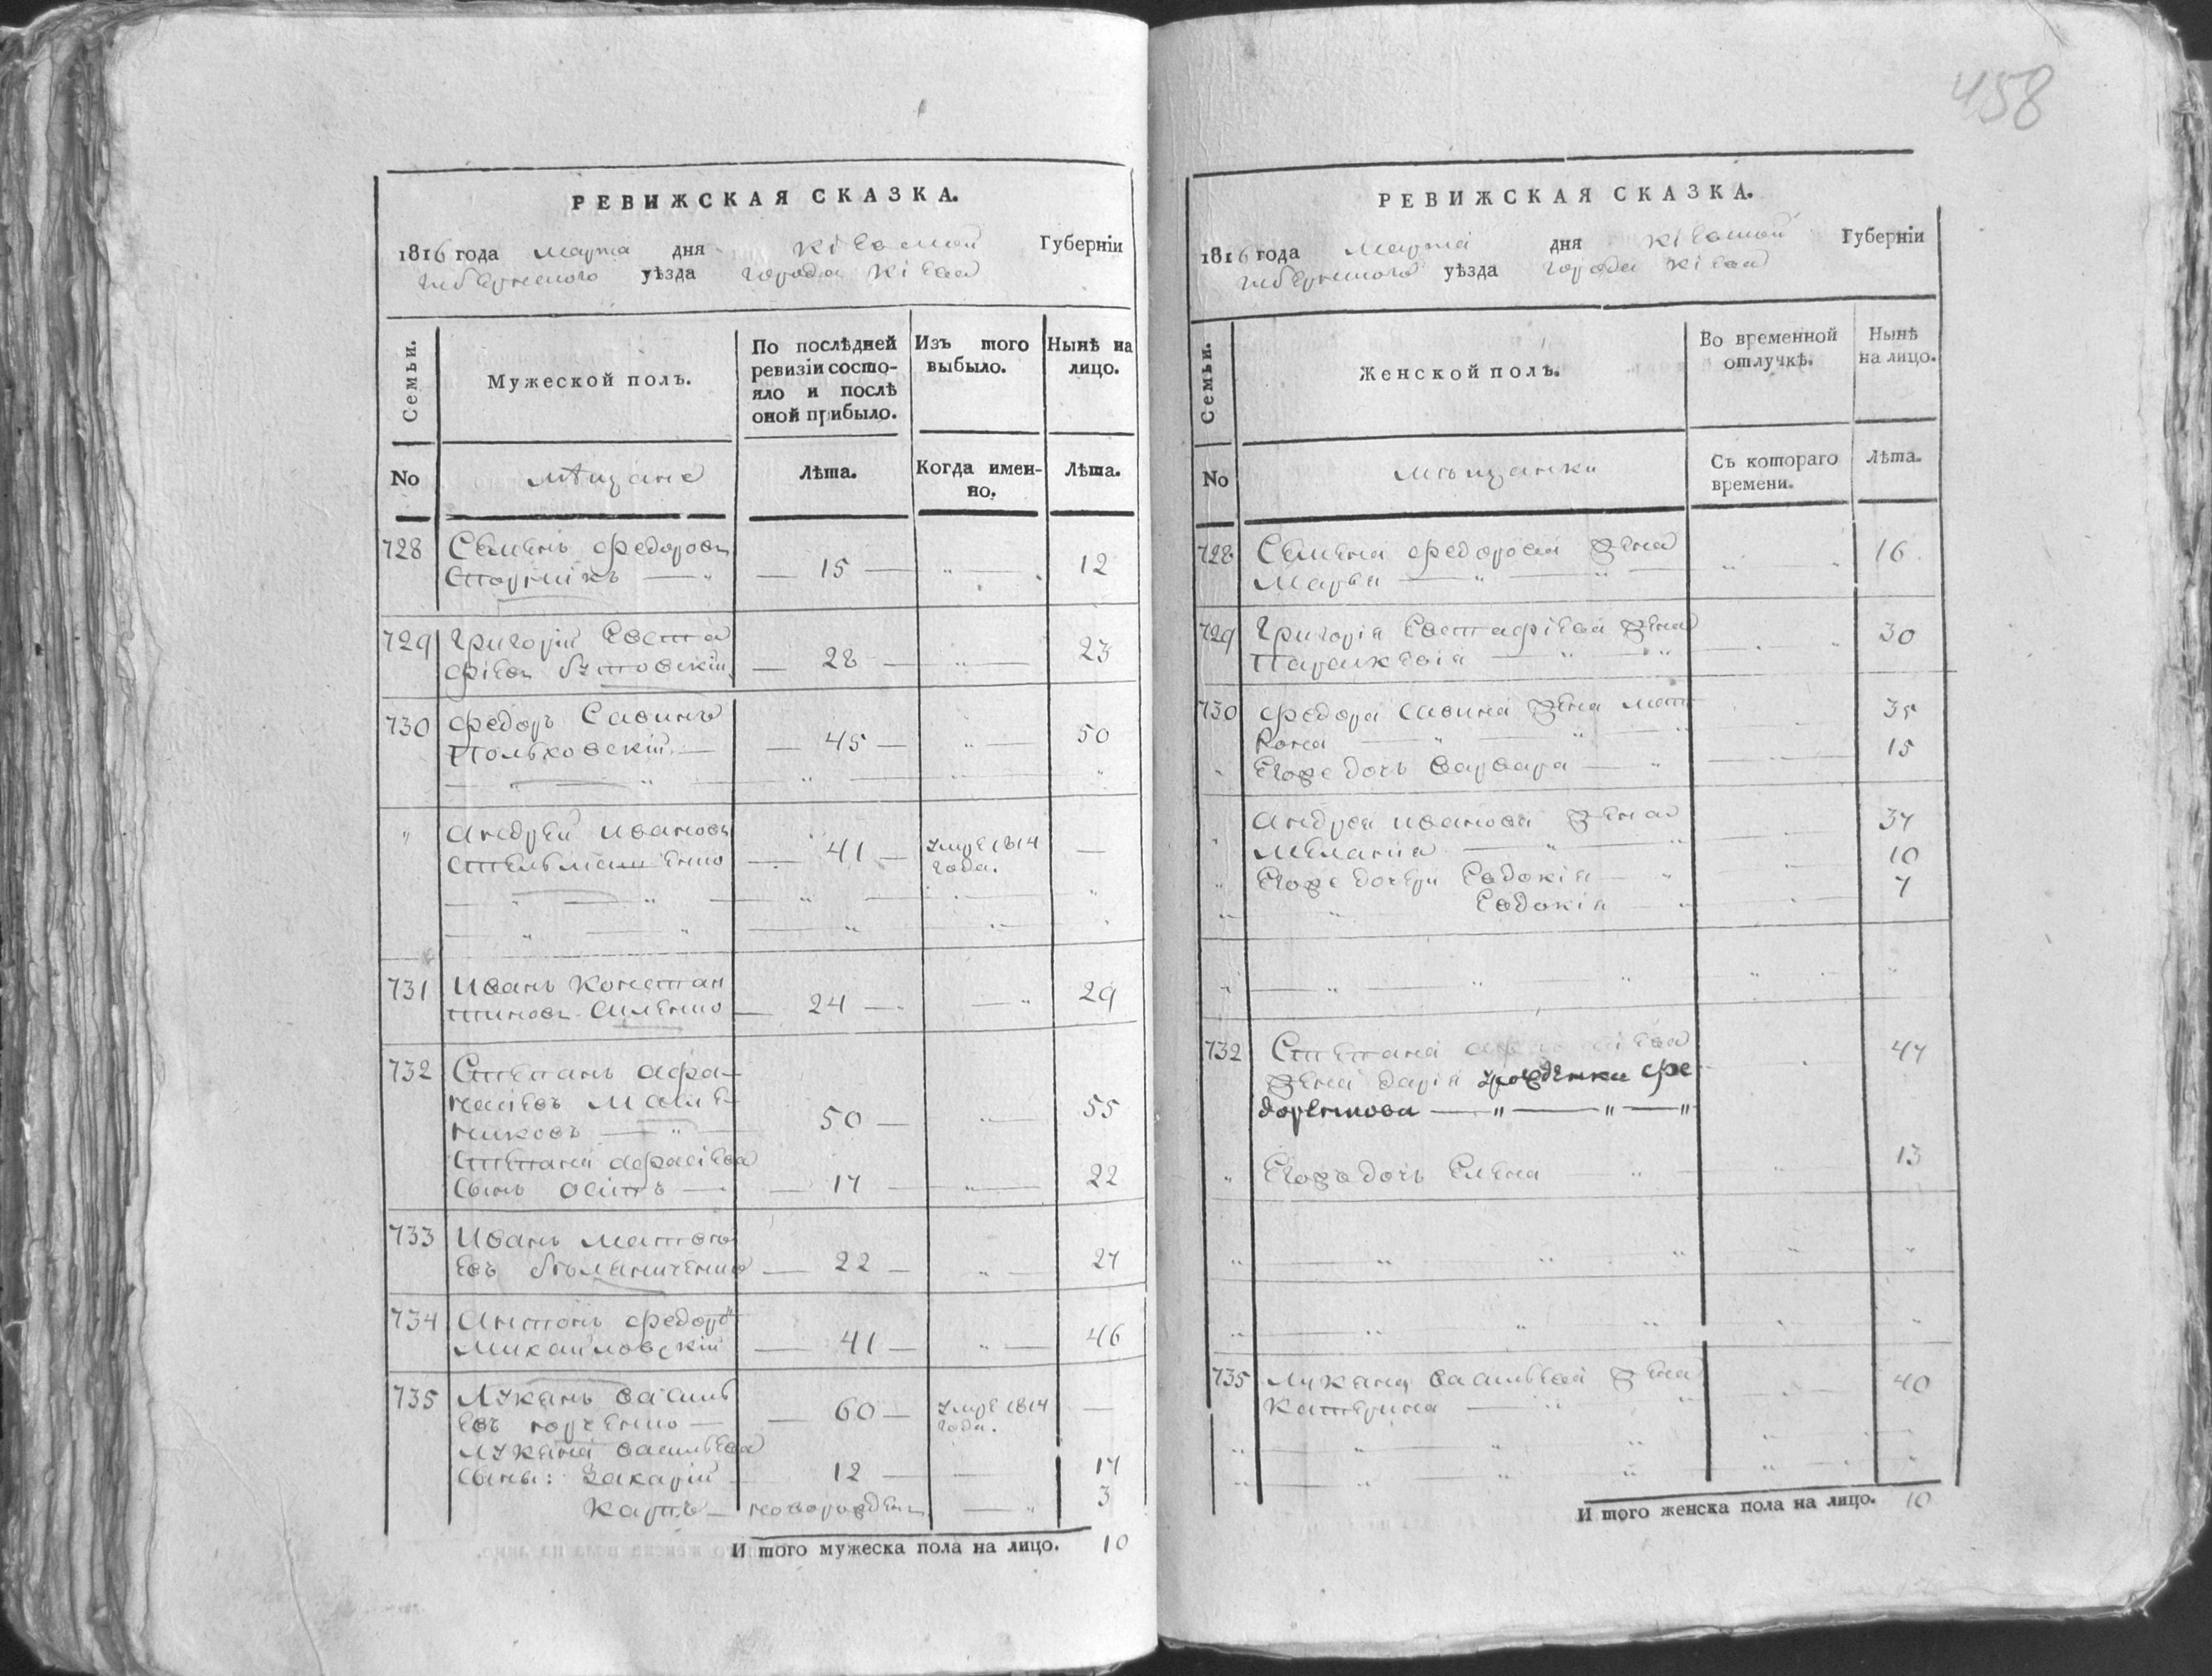 458
РЕВИЖСКАЯ СКАЗКА.
1816 года марта дня Кіевской Губерніи
губернского уѣзда города Кіева
Семьи.
Мужеской полъ.
По послѣдней ревизіи состояло и послѣ оной прибыло.
Изъ того выбыло.
Нынѣ на лицо.
No
мѣщане
Лѣта.
Когда именно.
Лѣта.
728 Семенъ Федоровъ
— 15 — „ — 12
729 Григорій Евста
фіевъ — 28 — „ — 23
730 Федоръ Савинъ
Польховскій — 45 — „ — 50
„ Андрей Ивановъ
Стельмашенко — 41 — умре 1814 —
года.
731 Иванъ Констан
тиновъ — 24 — „ 29
732 Степанъ Афа-
насіевъ
50 — „ — 55
Степана Афанасіева
сынъ Осипъ — 17 — „ — 22
733 Иванъ Матвѣ
евъ — 22 — „ — 27
734 Антонъ Федоръ
Михайловскій — 41 — „ — 46
735 Лукянъ Василь
евъ — 60 — умре 1814 —
года.
Лукяна Васильева
сыны: Захарій 12 — 17
Карпъ — новорожденъ — „ 3
И того мужеска пола на лицо. 10
РЕВИЖСКАЯ СКАЗКА.
1816 года Марта дня Кіевской Губерніи
губернского уѣзда города Кіева
Семьи.
Женской полъ.
Во временной отлучкѣ.
Нынѣ на лицо.
No
мѣщанки
Съ котораго времени.
Лѣта.
728 Семена Федорова жена
Марья 16
729 Григорія Евстафіева жена
Параскевія 30
730 Федора Савина жена Мат
рона 35
„ Егоже дочь Варвара — „ 15
„ Андрея Иванова жена
Меланія 37
„ Егоже дочери Евдокія — „ 10
Евдокія 7
732 Степана
жена Дарія урожденка Фе
47
„ Егожъ дочь Елена 13
735 Лукяна Васильева жена
Катерина 40
И того женска пола на лицо. 10